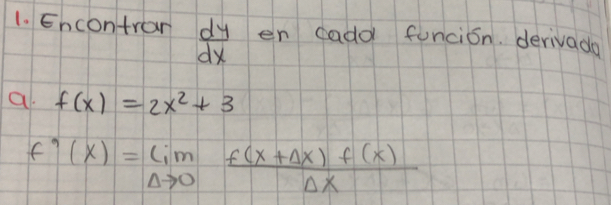 1. Encontrar dy/dx en cada función. derivada
a. f(x) = 2x² + 3
f'(x) = lim Δ→0 f(x+Δx) f(x) / Δx